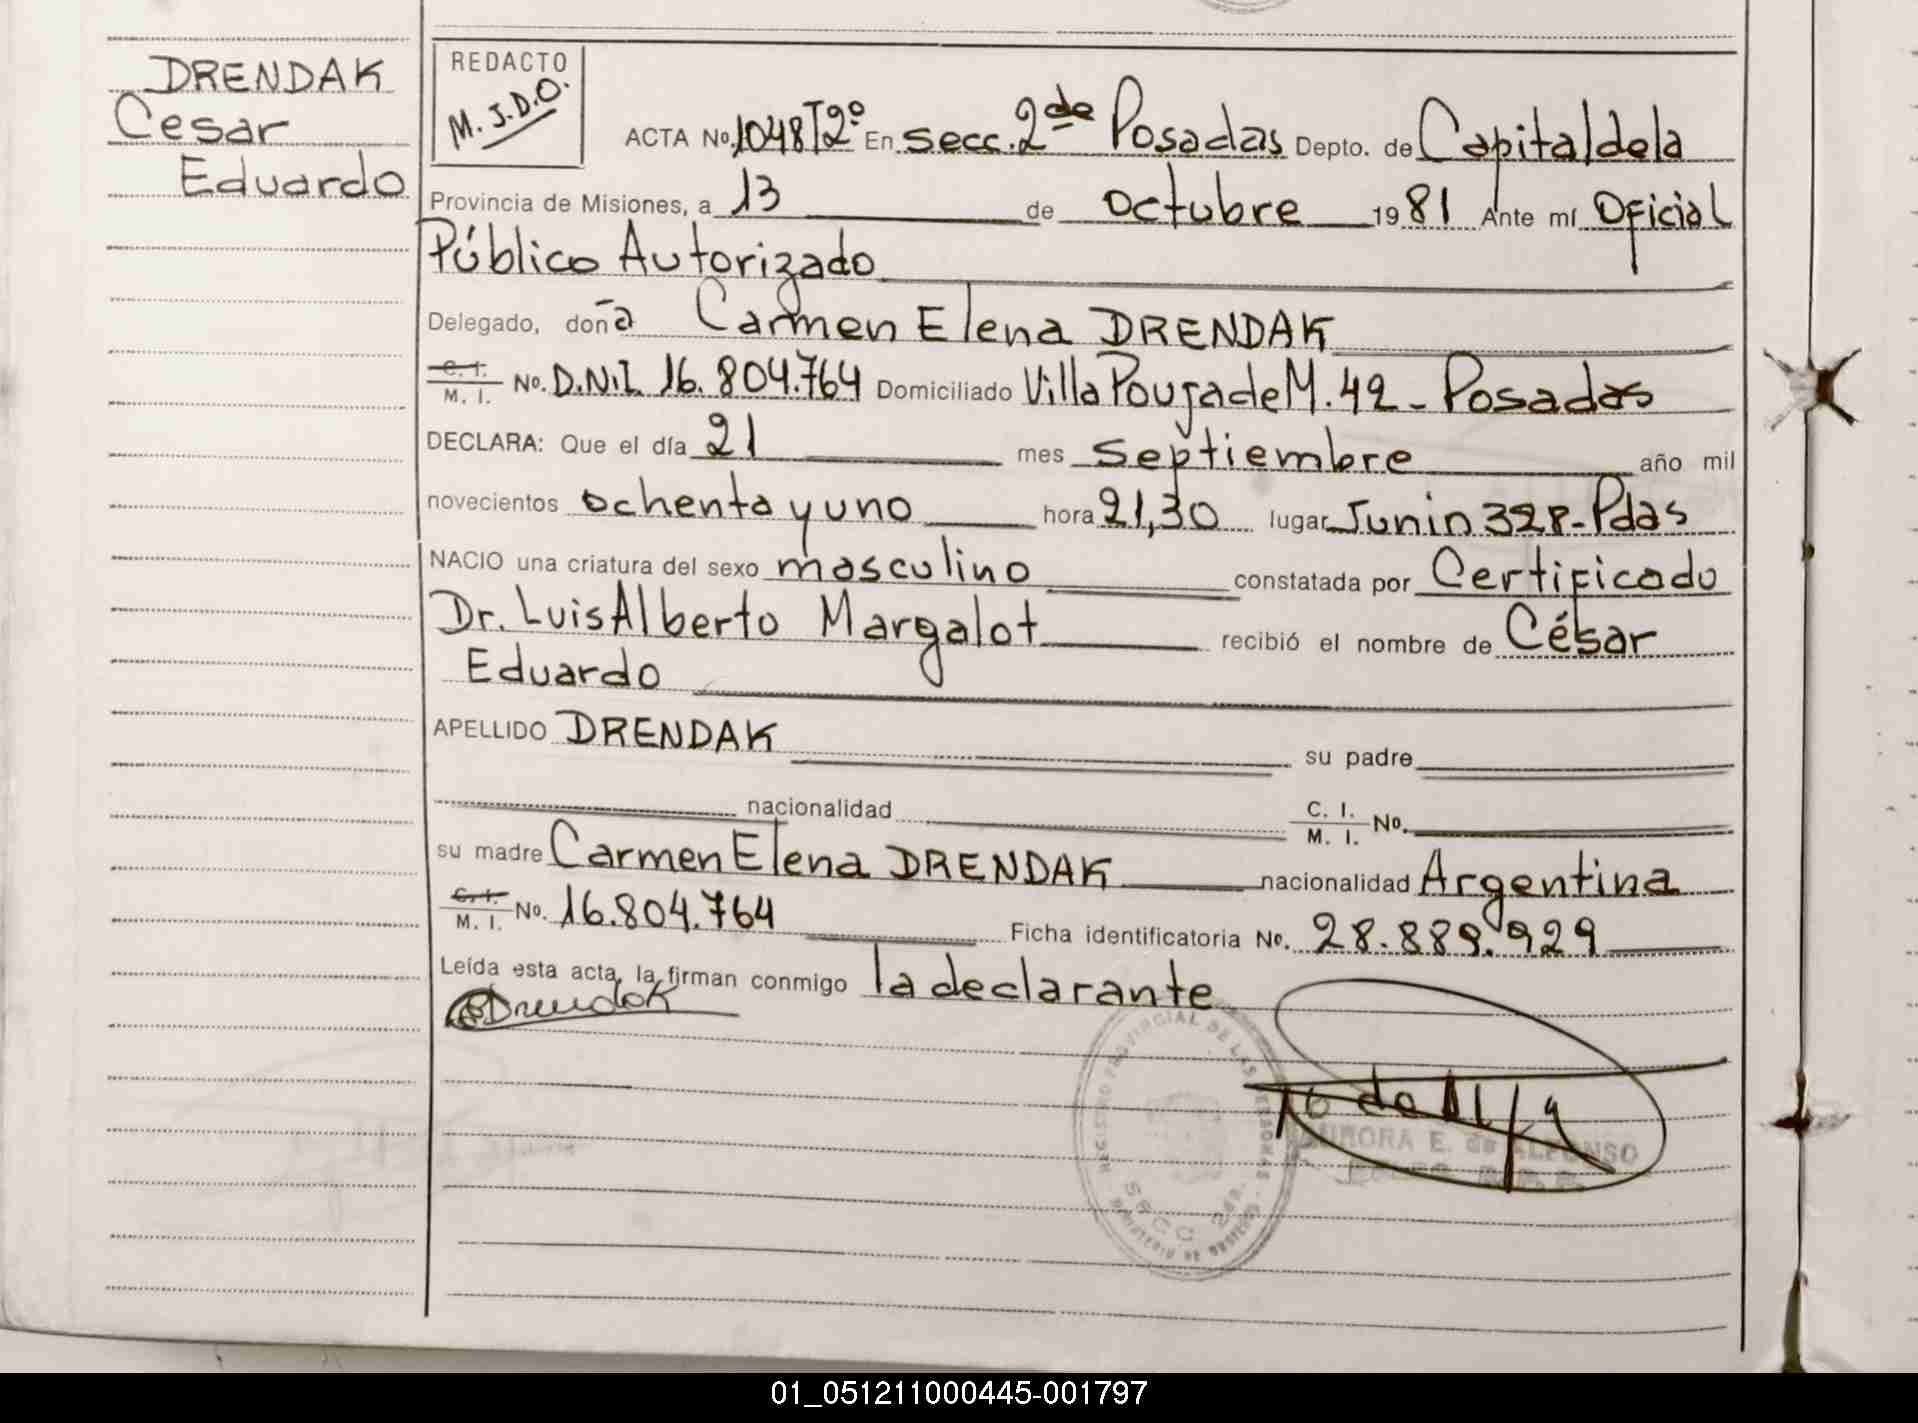 DRENDAK
Cesar
Eduardo
REDACTO
M.J.D.O.
ACTA No. 1048 T2º En secc. 2da Posadas Depto. de Capital de la
Provincia de Misiones, a 13 de octubre 1981 Ante mí Oficial
Público Autorizado
Delegado, doña Carmen Elena DRENDAK
C. I. / M. I. No. D.N.I. 16.804.764 Domiciliado Villa Poujade M. 42 - Posadas
DECLARA: Que el día 21 mes septiembre año mil
novecientos ochenta y uno hora 21,30 lugar Junin 328 - Pdas
NACIO una criatura del sexo masculino constatada por Certificado
Dr. Luis Alberto Margalot recibió el nombre de César
Eduardo
APELLIDO DRENDAK su padre
nacionalidad C. I. / M. I. No.
su madre Carmen Elena DRENDAK nacionalidad Argentina
C. I. / M. I. No. 16.804.764 Ficha identificatoria No. 28.889.929
Leída esta acta, la firman conmigo la declarante
Drendak
REGISTRO PROVINCIAL DE LAS PERSONAS
SECC 2da.
AURORA E. de ALFONSO
01_051211000445-001797